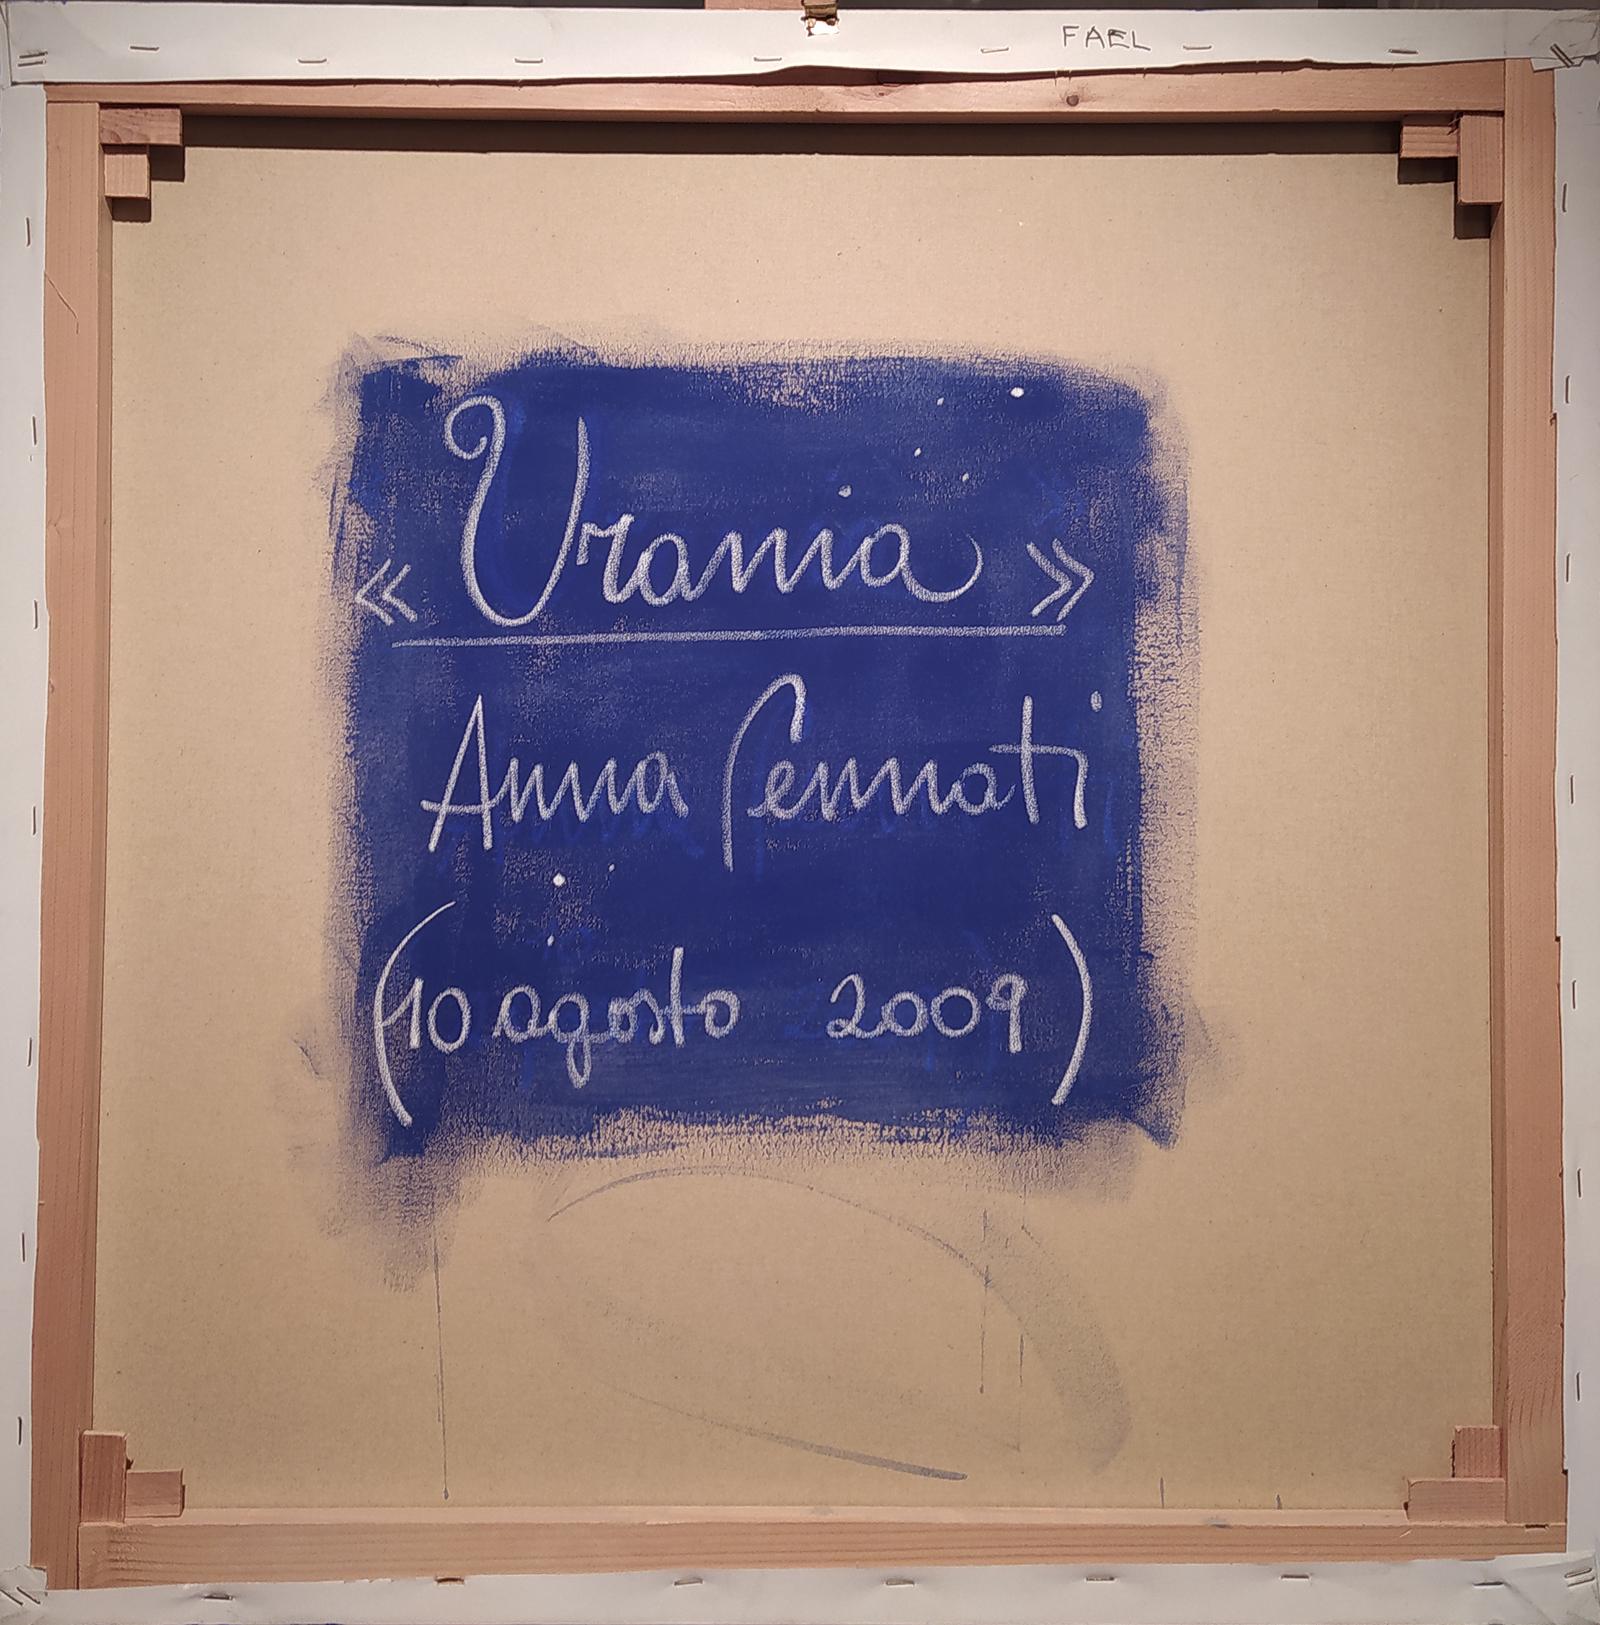 FAEL
« Urania »
Anna Pennati
(10 agosto 2009)